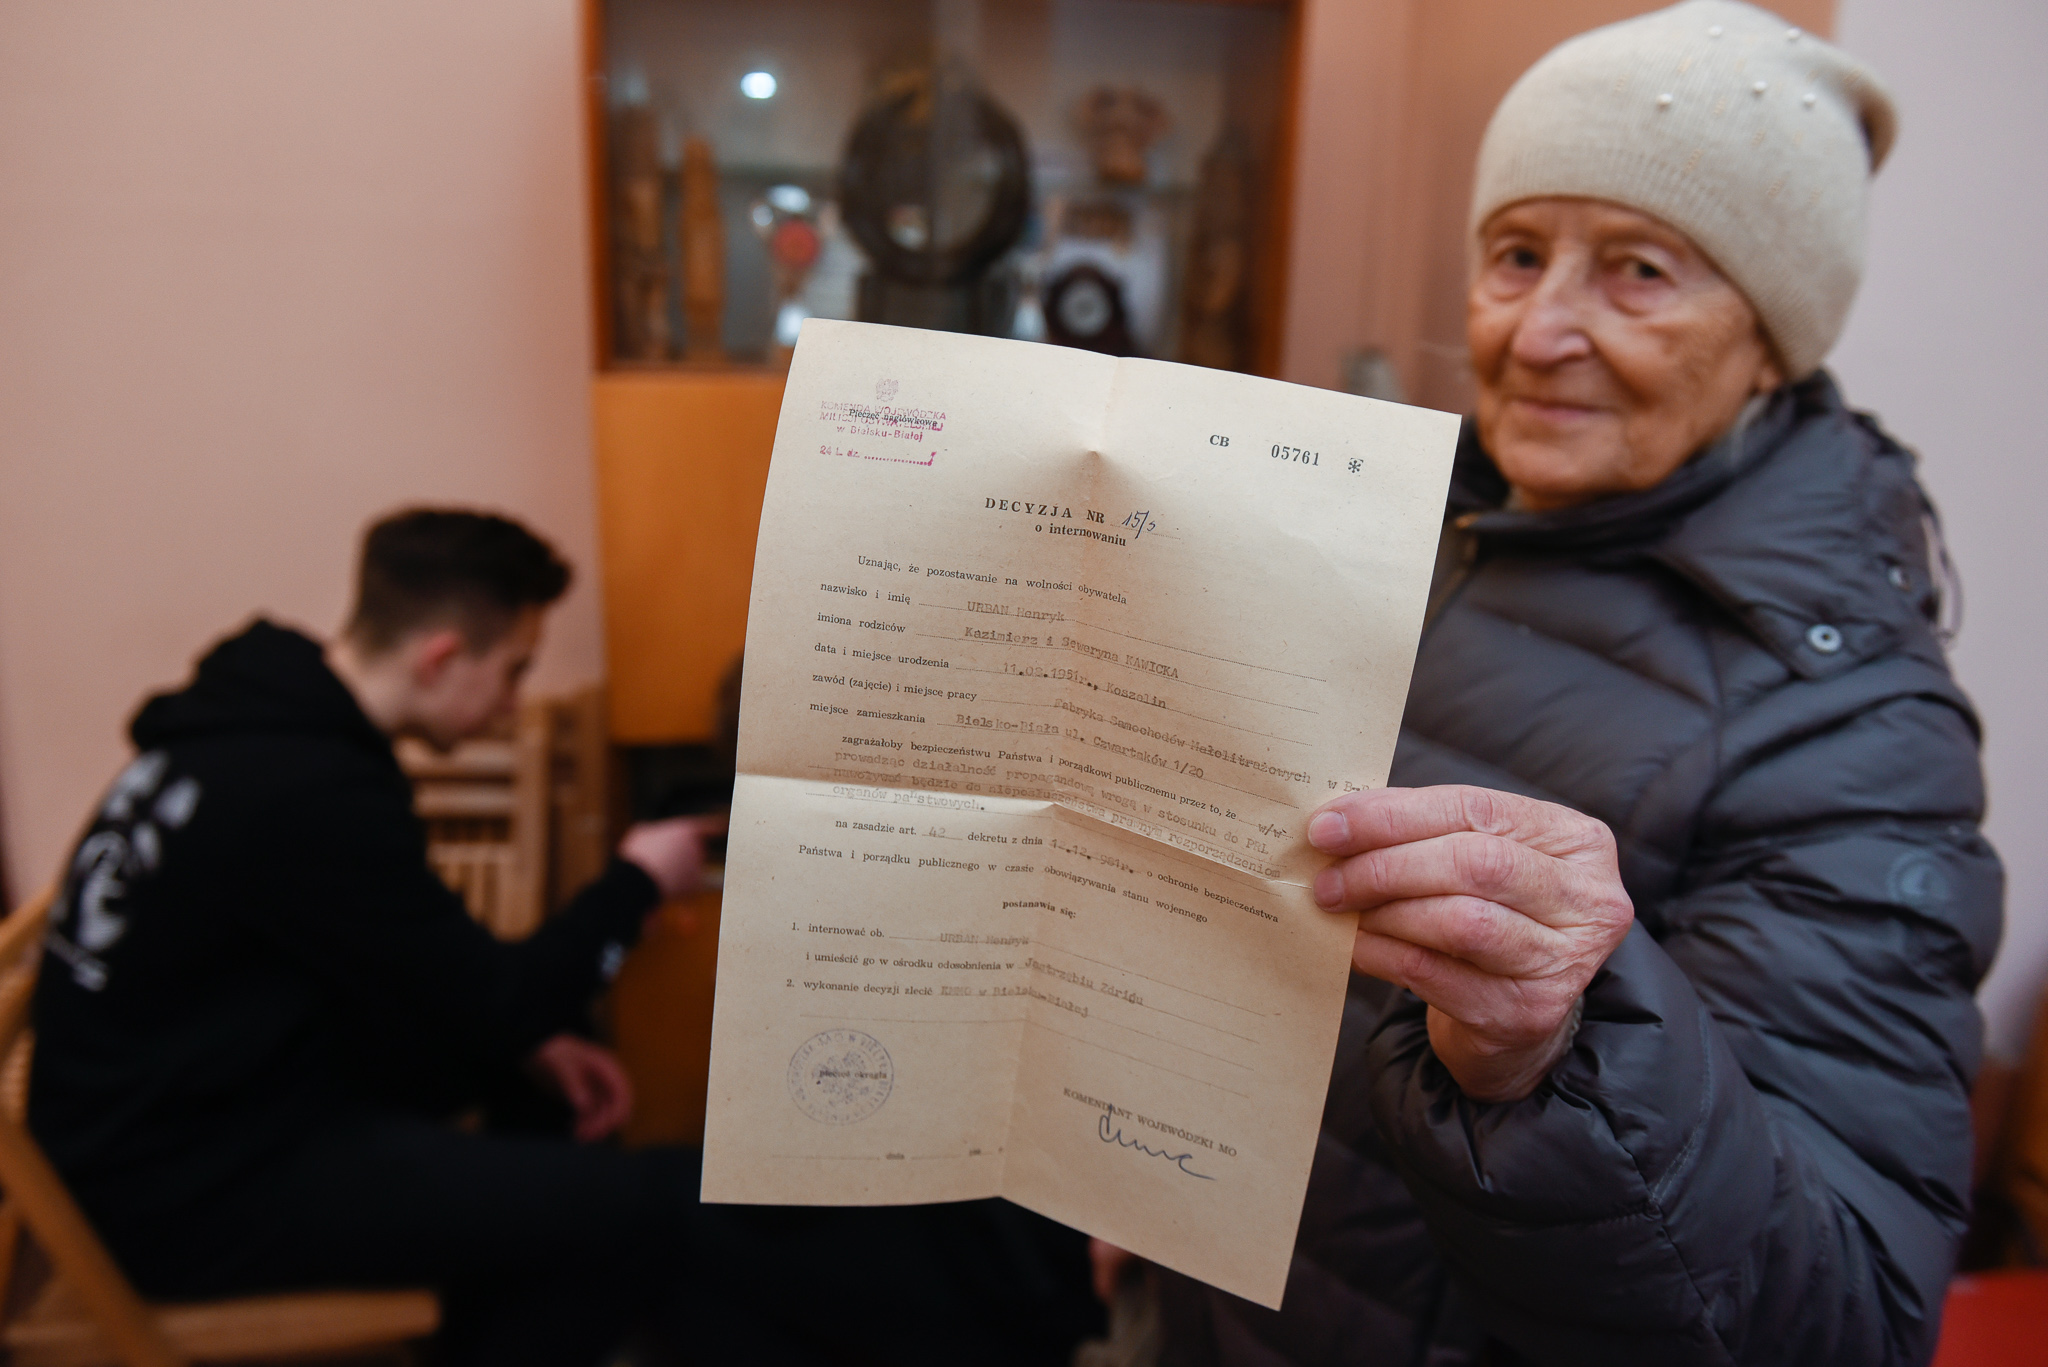 KOMENDA WOJEWÓDZKA
Pieczęć nagłówkowa
MILICJI OBYWATELSKIEJ
w Bielsku-Białej
CB 05761 *
DECYZJA NR 15/
o internowaniu
Uznając, że pozostawanie na wolności obywatela
nazwisko i imię URBAN Henryk
imiona rodziców Kazimierz i Seweryna KAWICKA
data i miejsce urodzenia 11.02.1951r., Koszalin
zawód (zajęcie) i miejsce pracy Fabryka Samochodów Małolitrażowych w B-B
miejsce zamieszkania Bielsko-Biała ul. Czwartaków 1/20
zagrażałoby bezpieczeństwu Państwa i porządkowi publicznemu przez to, że w/w
prowadząc działalność propagandową wrogą w stosunku do PRL
nawoływać będzie do nieposłuszeństwa prawnym rozporządzeniom
organów państwowych.
na zasadzie art. 42 dekretu z dnia 1 .12. 981r. o ochronie bezpieczeństwa
Państwa i porządku publicznego w czasie obowiązywania stanu wojennego
postanawia się:
1. internować ob. URBAN Henryk
i umieścić go w ośrodku odosobnienia w Jastrzębiu Zdroju
2. wykonanie decyzji zlecić KMMO w Bielsku-Białej
pieczęć okrągła
KOMENDANT WOJEWÓDZKI MO
dnia